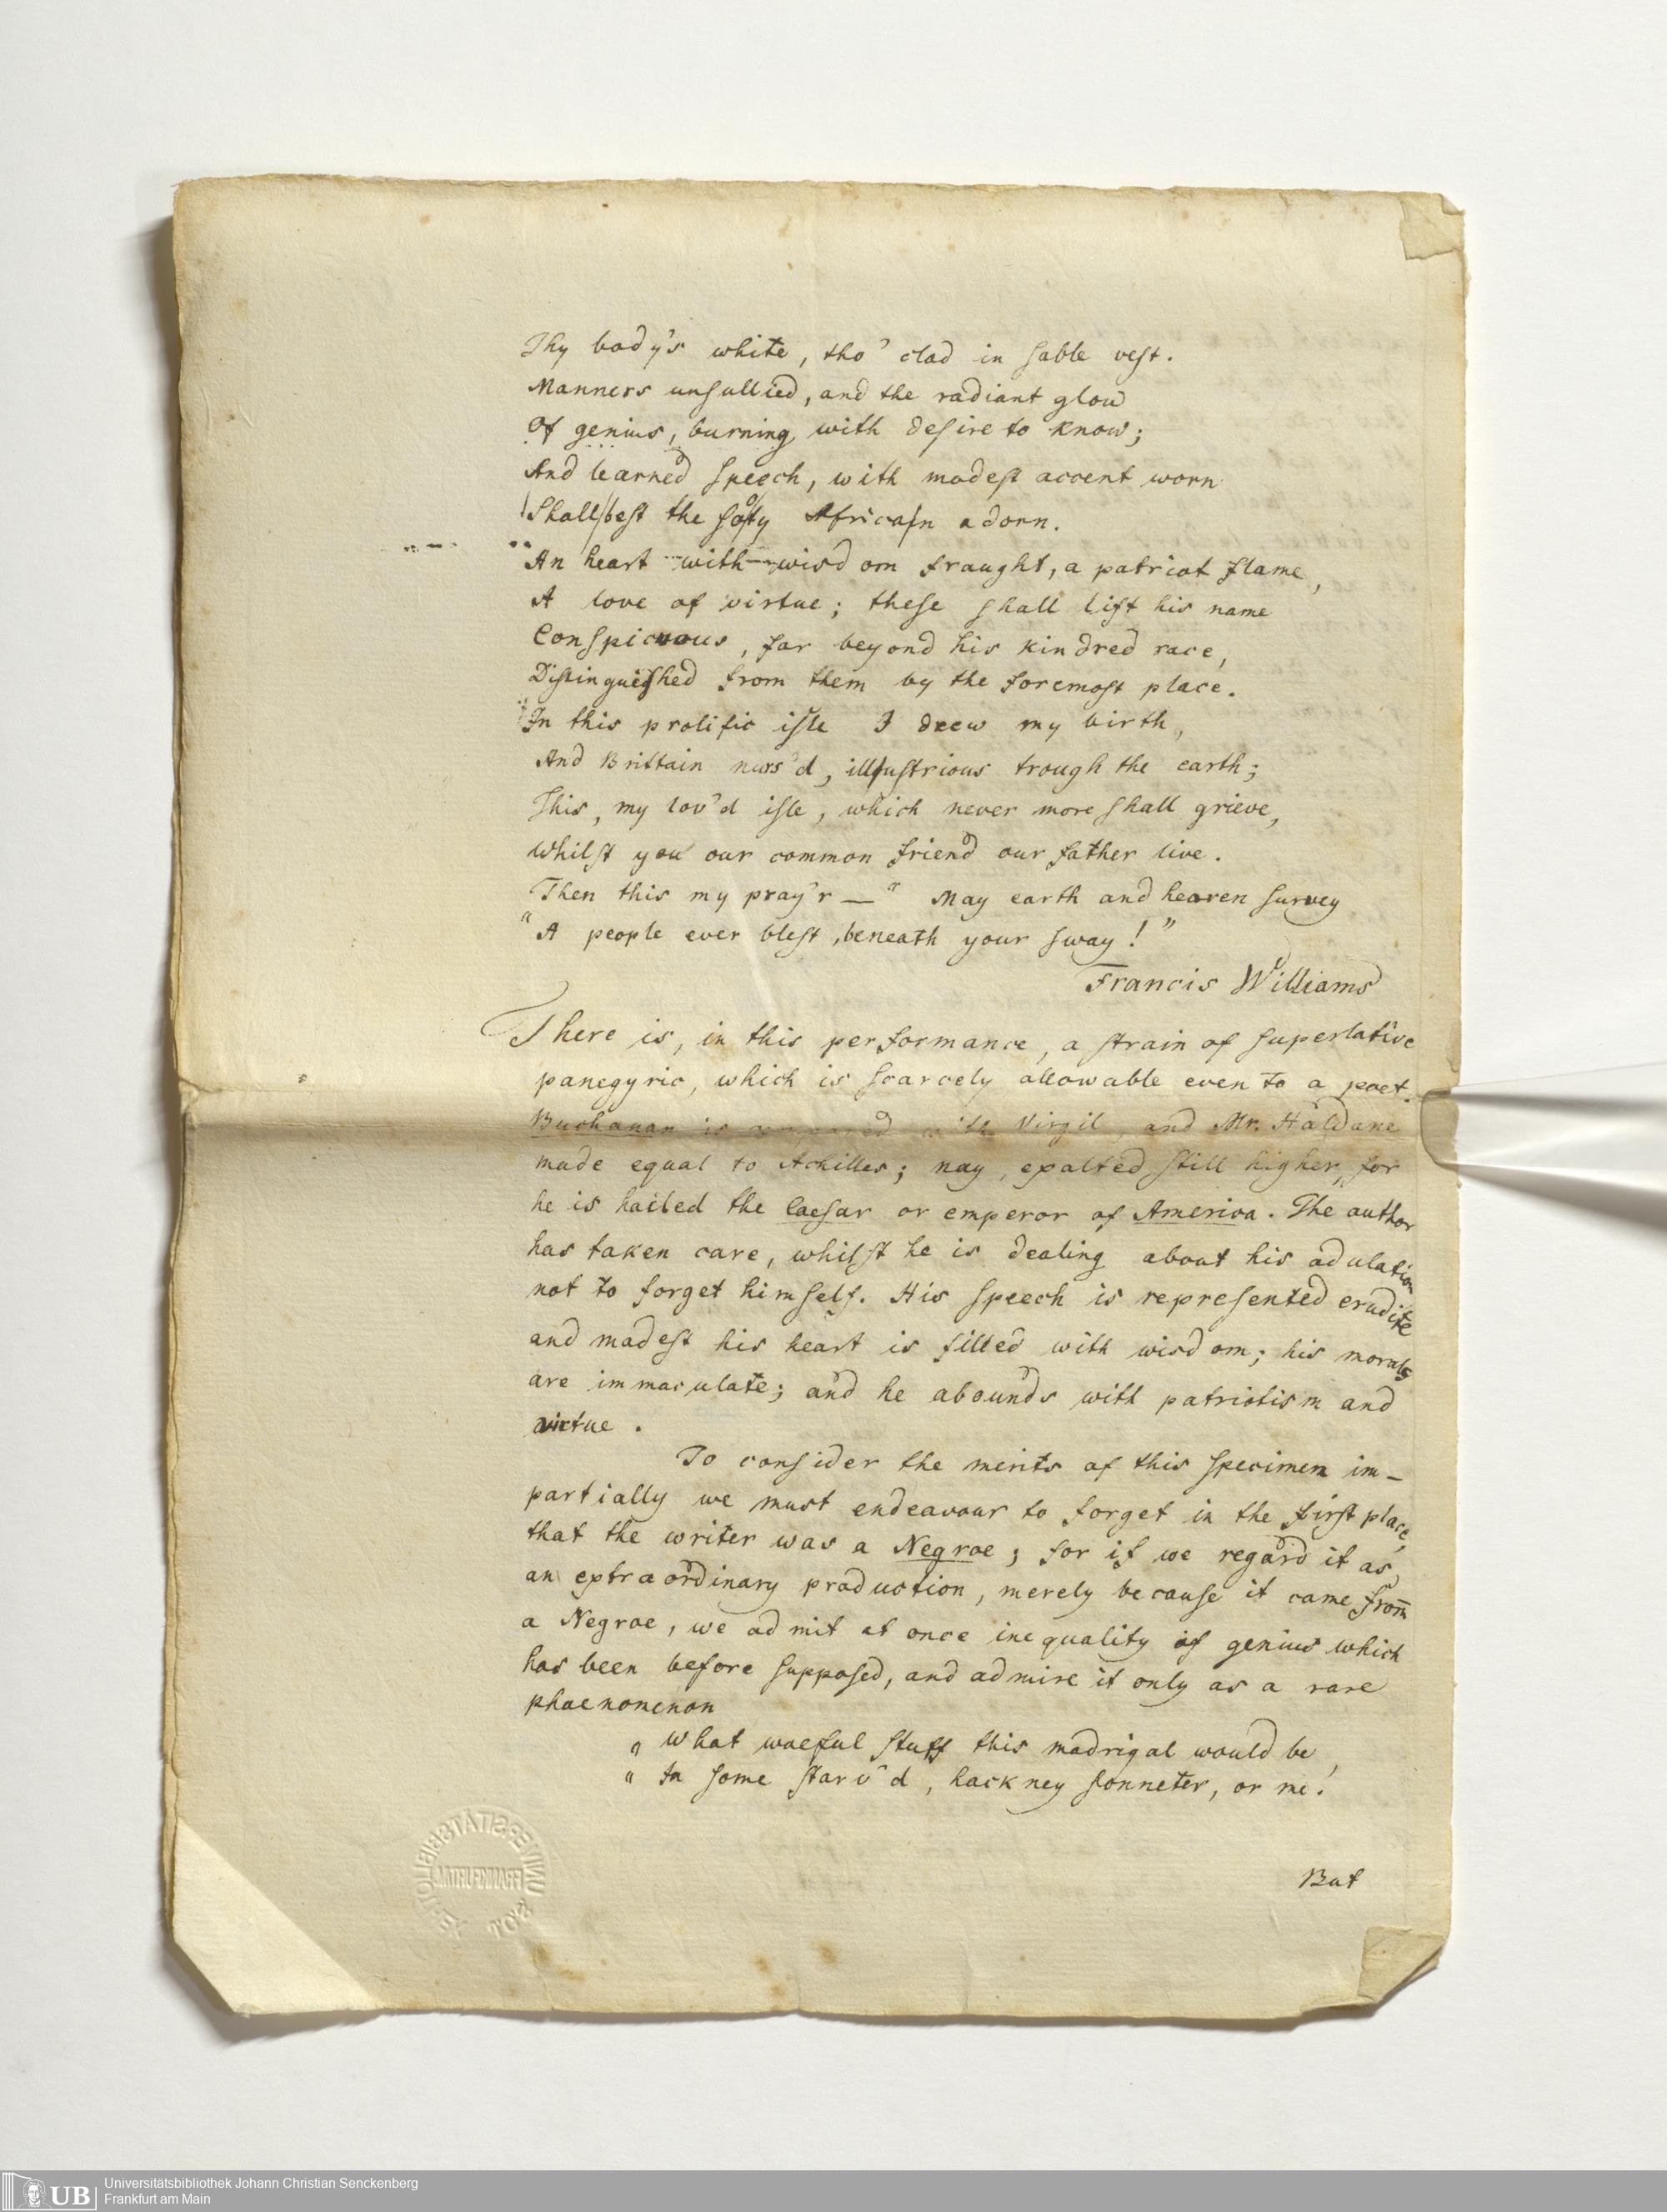 Thy body's white, tho' clad in sable vest.
Manners unsullied, and the radiant glow
Of genius, burning with desire to know;
And learned speech, with modest accent worn
Shall best the sooty African adorn.
An heart with wisdom fraught, a patriot flame,
A love of virtue; these shall lift his name
Conspicuous, far beyond his kindred race,
Distinguished from them by the foremost place.
In this prolific isle I drew my birth,
And Brittain nurs'd, illustrious trough the earth;
This, my lov'd isle, which never more shall grieve,
Whilst you our common friend our father live.
Then this my pray'r — " May earth and heaven survey
" A people ever blest, beneath your sway! "
Francis Williams
There is, in this performance, a strain of superlative
panegyric, which is scarcely allowable even to a poet.
Buchanan is compared with Virgil, and Mr. Haldane
made equal to Achilles; nay, exalted still higher, for
he is hailed the Caesar or emperor of America. The author
has taken care, whilst he is dealing about his adulation
not to forget himself. His speech is represented erudite
and modest his heart is filled with wisdom; his morals
are immaculate; and he abounds with patriotism and
virtue.
To consider the merits of this specimen im-
partially we must endeavour to forget in the first place,
that the writer was a Negroe; for if we regard it as
an extraordinary production, merely because it came from
a Negroe, we admit at once inequality of genius which
has been before supposed, and admire it only as a rare
phaenomenon
" What woeful stuff this madrigal would be,
" In some starv'd, hackney sonneter, or me!
But
UNIVERSITÄTSBIBLIOTHEK
FRANKFURT/M.
UB
Universitätsbibliothek Johann Christian Senckenberg
Frankfurt am Main